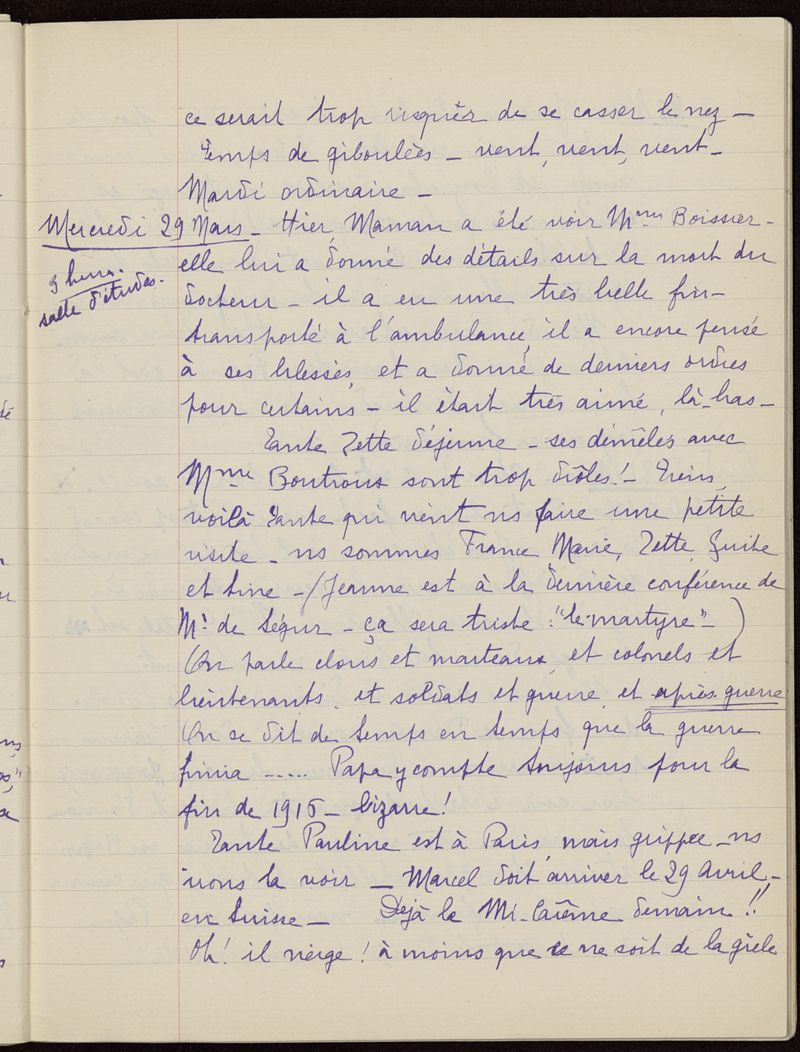 ce serait trop risquer de se casser le nez –
Temps de giboulées – vent, vent, vent –
Mardi ordinaire –
Mercredi 29 Mars – Hier Maman a été voir Mme Boissier –
9 heures.
salle d'études.
elle lui a donné des détails sur la mort du
docteur – il a eu une très belle fin –
transporté à l'ambulance, il a encore pensé
à ses blessés, et a donné de derniers ordres
pour certains – il était très aimé, là-bas –
Tante Zette déjeune – ses démêlés avec
Mme Boutroux sont trop drôles! – Tiens,
voilà Tante qui vient ns faire une petite
visite – ns sommes France Marie, Zette, Guite
et Line – (Jeanne est à la dernière conférence de
Mr de Ségur – ça sera triste : "le martyre" – )
On parle clous et marteaux, et colonels et
lieutenants, et soldats et guerre, et après-guerre
On se dit de temps en temps que la guerre
finira ..... Papa y compte toujours pour la
fin de 1916 – bizarre!
Tante Pauline est à Paris, mais grippée – ns
irons la voir – Marcel doit arriver le 29 Avril, –
en Suisse – Déjà la Mi-Carême demain!!
Oh! il neige! à moins que ce ne soit de la grêle